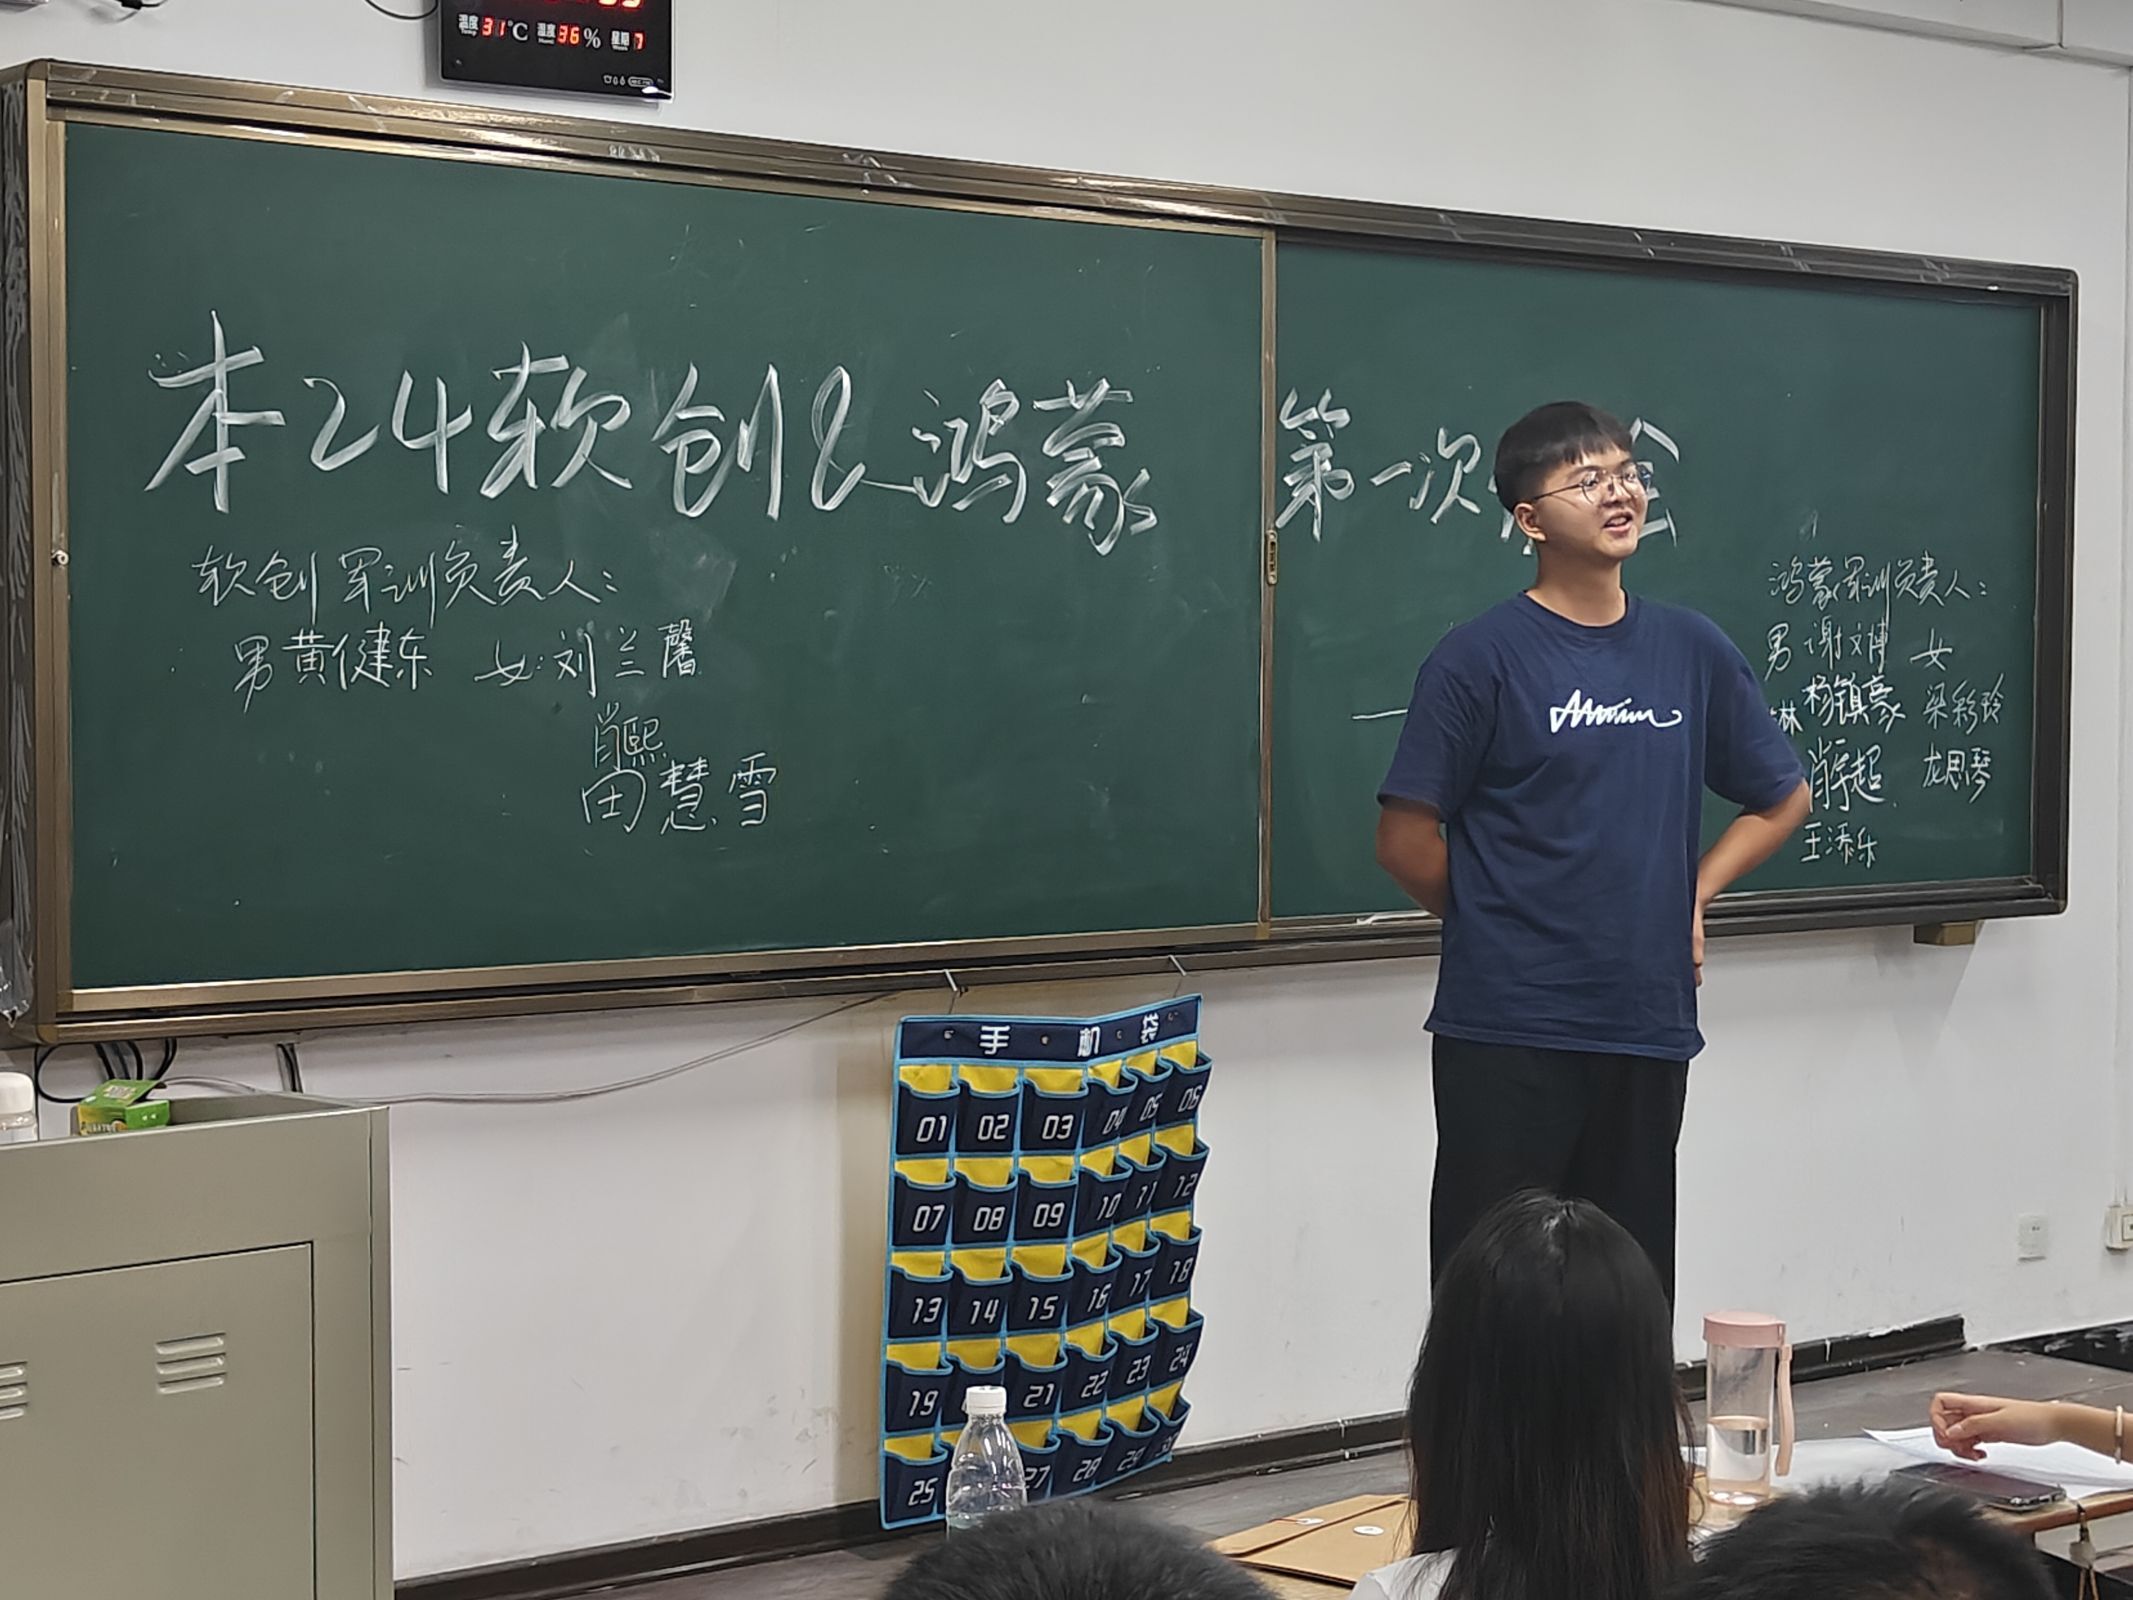 温度 31℃ 湿度 36% 星期 7
Temp Humi Week
本24软创&鸿蒙 第一次 会
软创军训负责人：
男黄健东 女：刘兰馨
肖熙
田慧雪
鸿蒙军训负责人：
男 谢文博 女
林 杨镇豪 梁彩玲
肖宇超 龙思琴
王添乐
手机袋
01 02 03 04 05 06
07 08 09 10 11 12
13 14 15 16 17 18
19 21 22 23 24
25 27 28 29 30